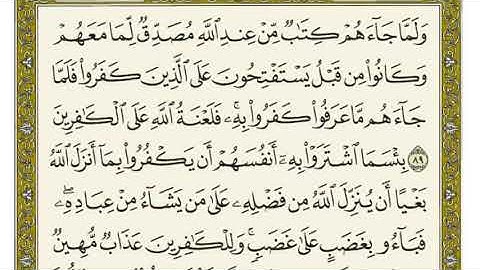 وَلَمَّا جَآءَهُمْ كِتَٰبٌ مِّنْ عِندِ ٱللَّهِ مُصَدِّقٌ لِّمَا مَعَهُمْ
وَكَانُوا۟ مِن قَبْلُ يَسْتَفْتِحُونَ عَلَى ٱلَّذِينَ كَفَرُوا۟ فَلَمَّا
جَآءَهُم مَّا عَرَفُوا۟ كَفَرُوا۟ بِهِۦ ۚ فَلَعْنَةُ ٱللَّهِ عَلَى ٱلْكَٰفِرِينَ
٨٩ بِئْسَمَا ٱشْتَرَوْا۟ بِهِۦٓ أَنفُسَهُمْ أَن يَكْفُرُوا۟ بِمَآ أَنزَلَ ٱللَّهُ
بَغْيًا أَن يُنَزِّلَ ٱللَّهُ مِن فَضْلِهِۦ عَلَىٰ مَن يَشَآءُ مِنْ عِبَادِهِۦ ۖ
فَبَآءُو بِغَضَبٍ عَلَىٰ غَضَبٍ ۚ وَلِلْكَٰفِرِينَ عَذَابٌ مُّهِينٌ